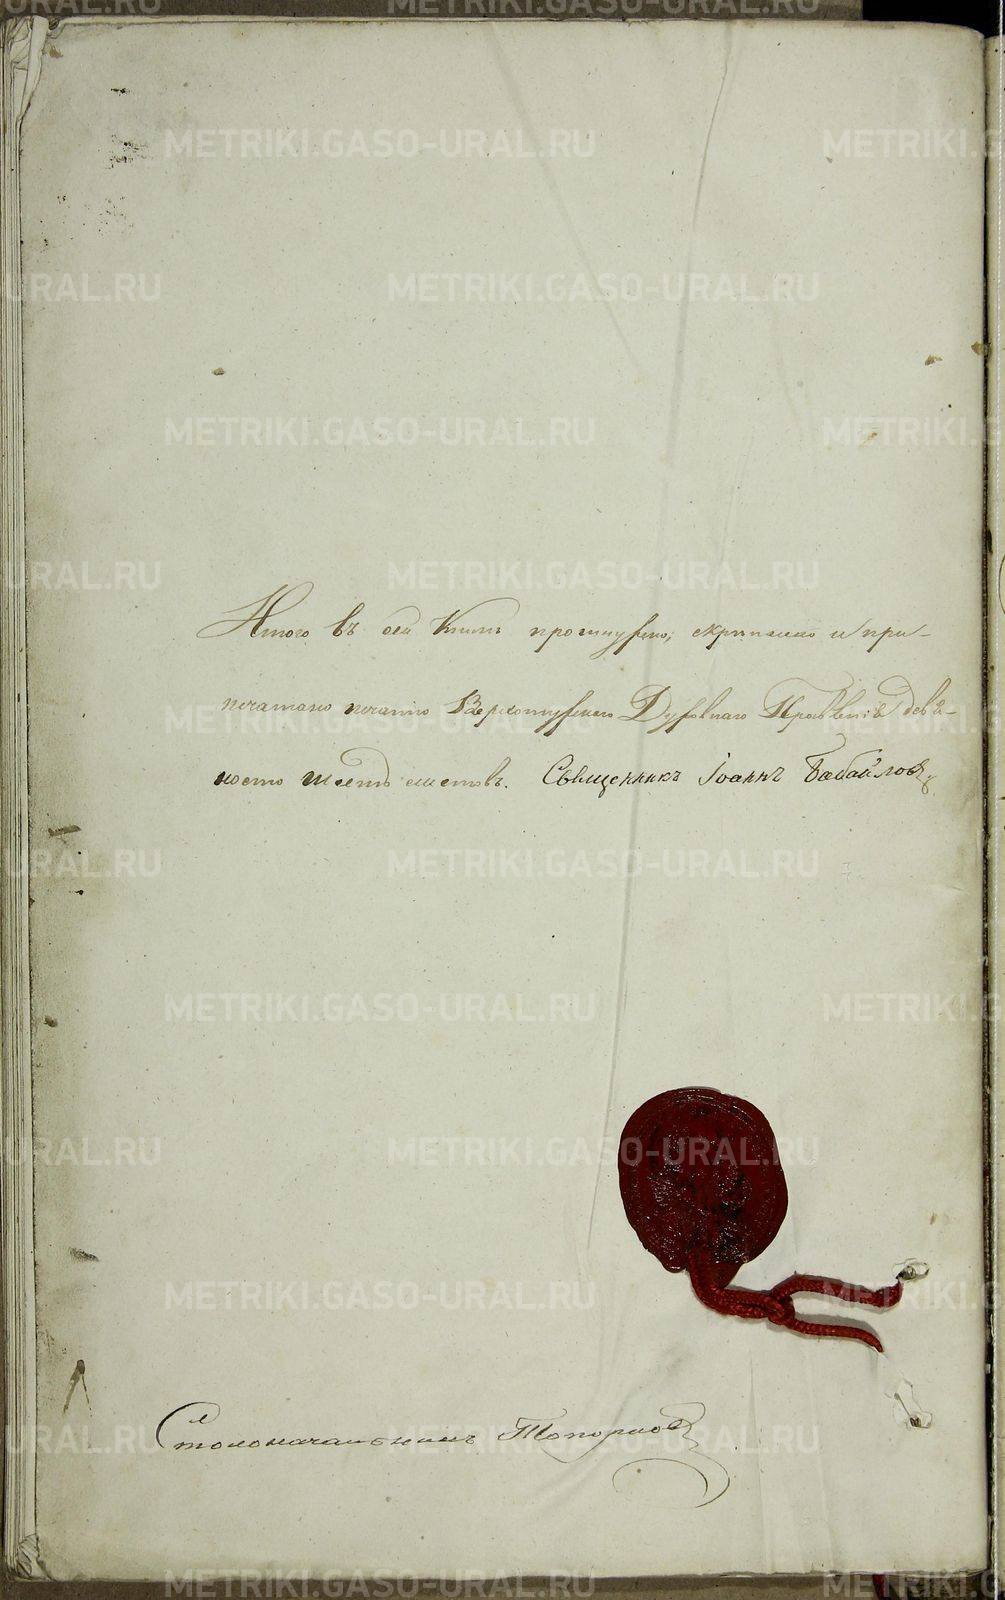 Итого въ сей Книгѣ прошнуровано, скрѣплено и при-
печатано печатью Верхотурскаго Духовнаго Правленія девя-
носто шесть листовъ. Священникъ Іоаннъ Бабайловъ
Столоначальникъ Топорковъ
METRIKI.GASO-URAL.RU